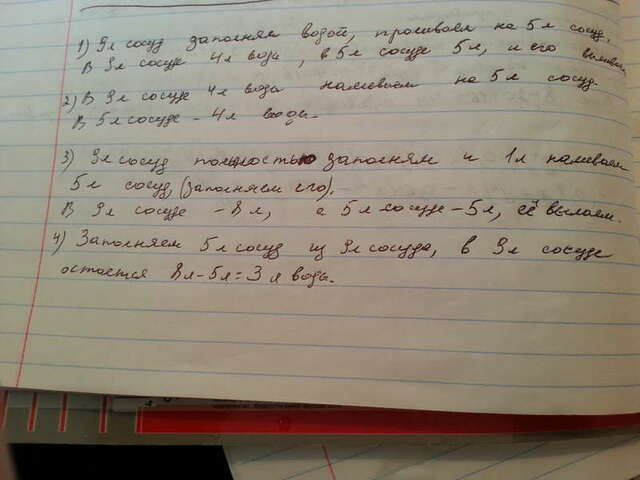 1) 9л сосуд заполняем водой, проливаем на 5л сосуд.
В 9л сосуде 4л воды, в 5л сосуде 5л, и его выливаем
2) В 9л сосуде 4л воды наливаем на 5л сосуд.
В 5л сосуде - 4л воды.
3) 9л сосуд полностью заполням и 1л наливаем
5л сосуд, (заполняем его).
В 9л сосуде - 8л, а 5л сосуде - 5л, её вылаем.
4) Заполняем 5л сосуд из 9л сосуда, в 9л сосуде
остается 8л-5л=3л воды.